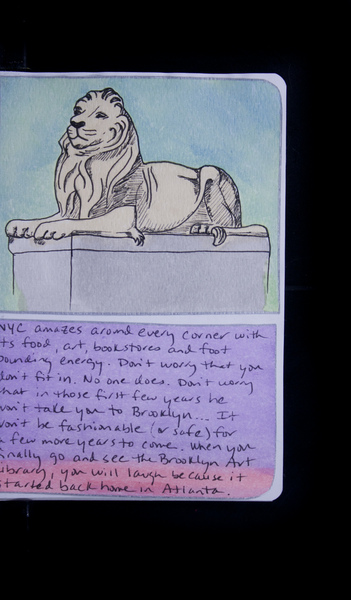 NYC amazes around every corner with
its food, art, bookstores and foot
pounding energy. Don't worry that you
don't fit in. No one does. Don't worry
that in those first few years he
won't take you to Brooklyn... It
won't be fashionable (or safe) for
a few more years to come. When you
finally go and see the Brooklyn Art
Library, you will laugh because it
started back home in Atlanta.